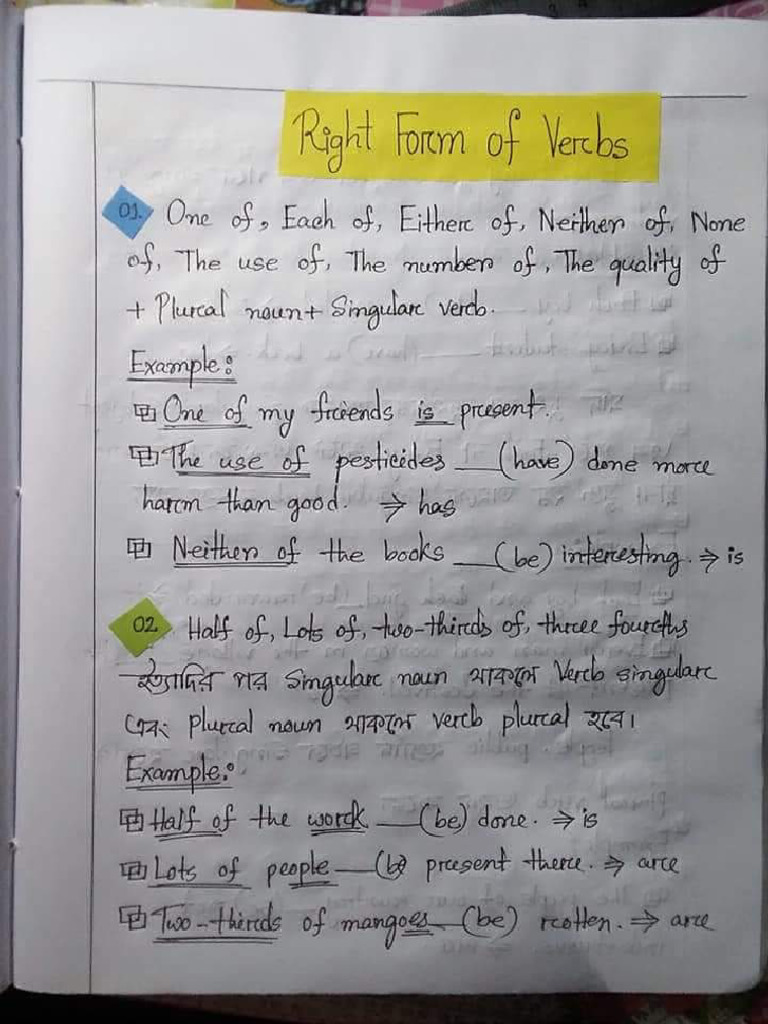 Right Form of Verbs
01. One of, Each of, Either of, Neither of, None
of, The use of, The number of, The quality of
+ Plural noun + Singular verb.
Example:
One of my friends is present.
The use of pesticides __ (have) done more
harm than good. ⇒ has
Neither of the books __ (be) interesting. ⇒ is
02 Half of, Lots of, two-thirds of, three fourths
ইত্যাদির পর singular noun থাকলে Verb singular
এবং plural noun থাকলে verb plural হবে।
Example:
Half of the work __ (be) done. ⇒ is
Lots of people __ (be) present there. ⇒ are
Two-thirds of mangoes __ (be) rotten. ⇒ are